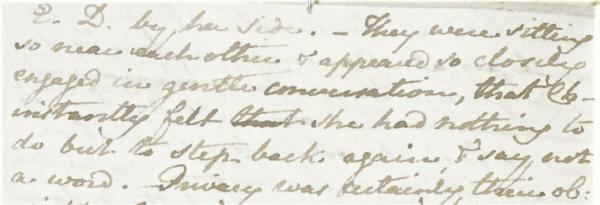 E. D. by her side. – They were sitting
so near each other & appeared so closely
engaged in gentle conversation, that Ch–
instantly felt that she had nothing to
do but to step back again, & say not
a word. – Privacy was certainly their ob: